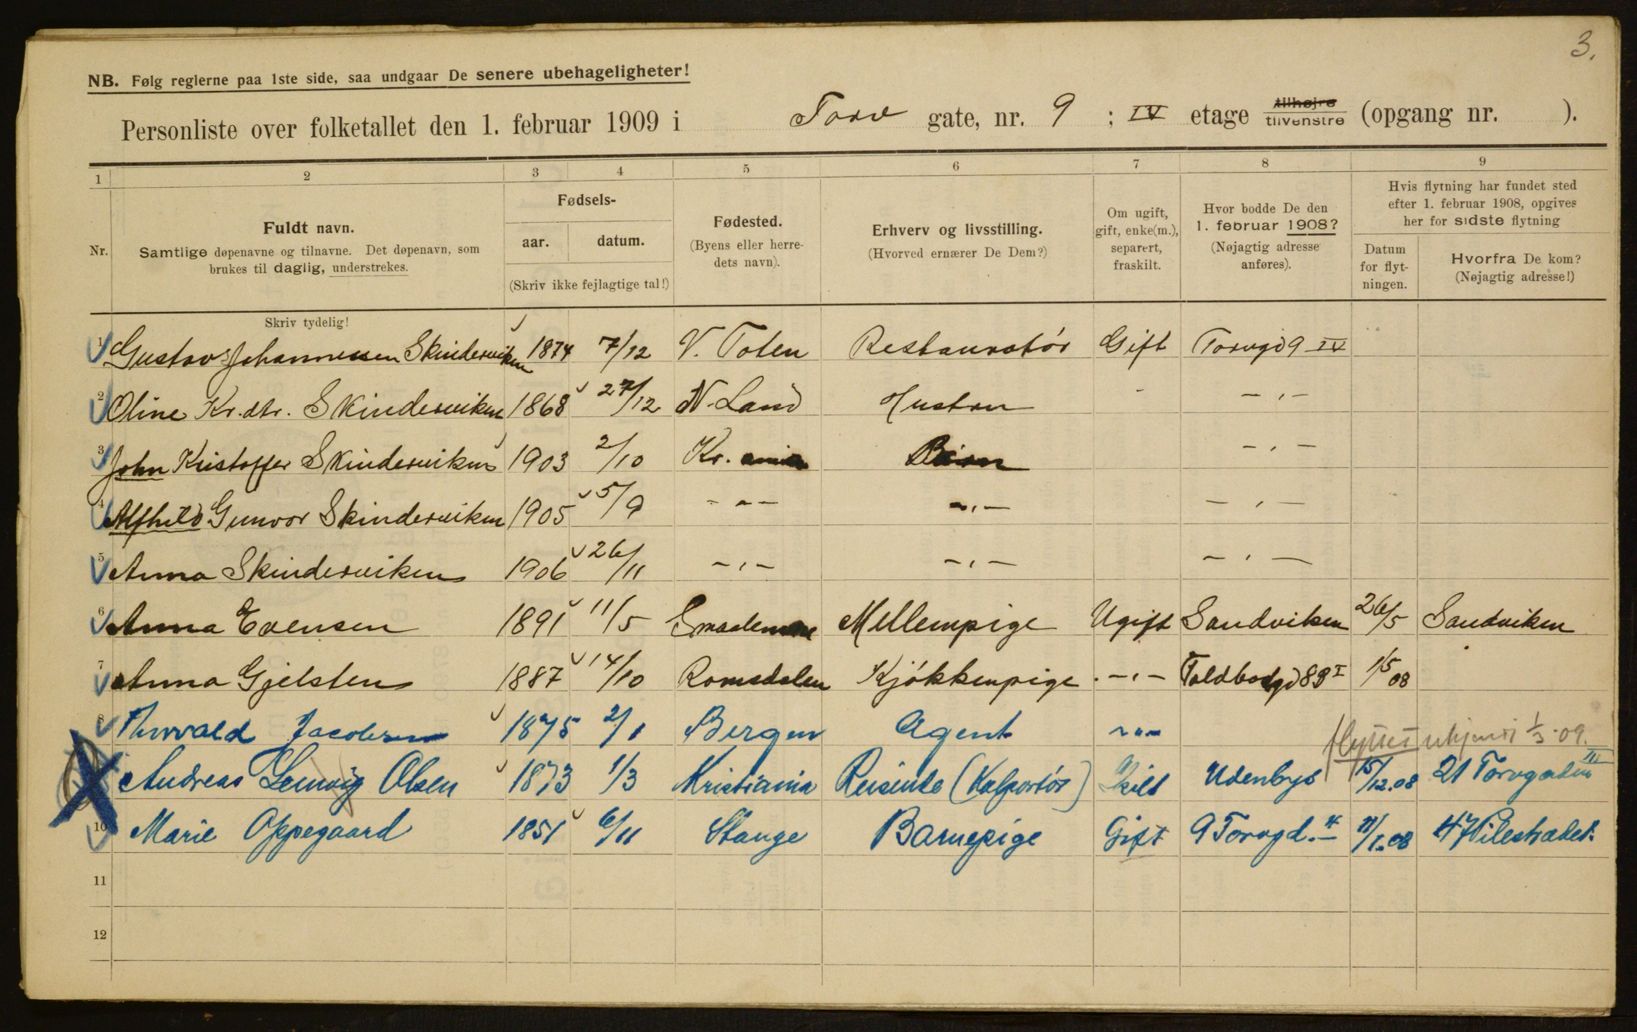 3.
NB. Følg reglerne paa 1ste side, saa undgaar De senere ubehageligheter!
Personliste over folketallet den 1. februar 1909 i Torv gate, nr. 9 ; IV etage tilhøjre tilvenstre (opgang nr. ).
1 2 3 4 5 6 7 8 9
Nr.
Fuldt navn.
Samtlige døpenavne og tilnavne. Det døpenavn, som
brukes til daglig, understrekes.
Skriv tydelig!
Fødsels-
aar. datum.
(Skriv ikke fejlagtige tal!)
Fødested.
(Byens eller herre-
dets navn).
Erhverv og livsstilling.
(Hvorved ernærer De Dem?)
Om ugift,
gift, enke(m.),
separert,
fraskilt.
Hvor bodde De den
1. februar 1908?
(Nøjagtig adresse
anføres).
Hvis flytning har fundet sted
efter 1. februar 1908, opgives
her for sidste flytning
Datum
for flyt-
ningen.
Hvorfra De kom?
(Nøjagtig adresse!)
1 Gustav Johannessen Skinderviken 1874 7/12 V. Toten Restauratør Gift Torvgd 9 IV
2 Oline Kr.dtr. Skinderviken 1868 27/12 N. Land Hustru - - " -
3 John Kristoffer Skinderviken 1903 2/10 Kr.ania Barn - " -
4 Alfhild Gunvor Skinderviken 1905 5/9 - " - - " - - " -
5 Anna Skinderviken 1906 26/11 - " - - " - - " -
6 Anna Evensen 1891 11/5 Smaalenene Mellempige Ugift Sandviken 26/5 Sandviken
7 Anna Gjelsten 1887 14/10 Romsdalen Kjøkkenpige - " - Toldbodgd 83 I 1/5 08
8 Jacobsen 1875 2/1 Bergen Agent - " -
flyttet ukjendt 1/3-09.
Andreas Olsen 1873 1/3 Kristiania Reisende (Kolportør) Skilt Udenbys 15/12.08 21 Torvgaden III
10 Marie Oppegaard 1851 6/11 Stange Barnepige Gift 9 Torvgd. 4 11/1.08 47 Pilestrædet.
11
12